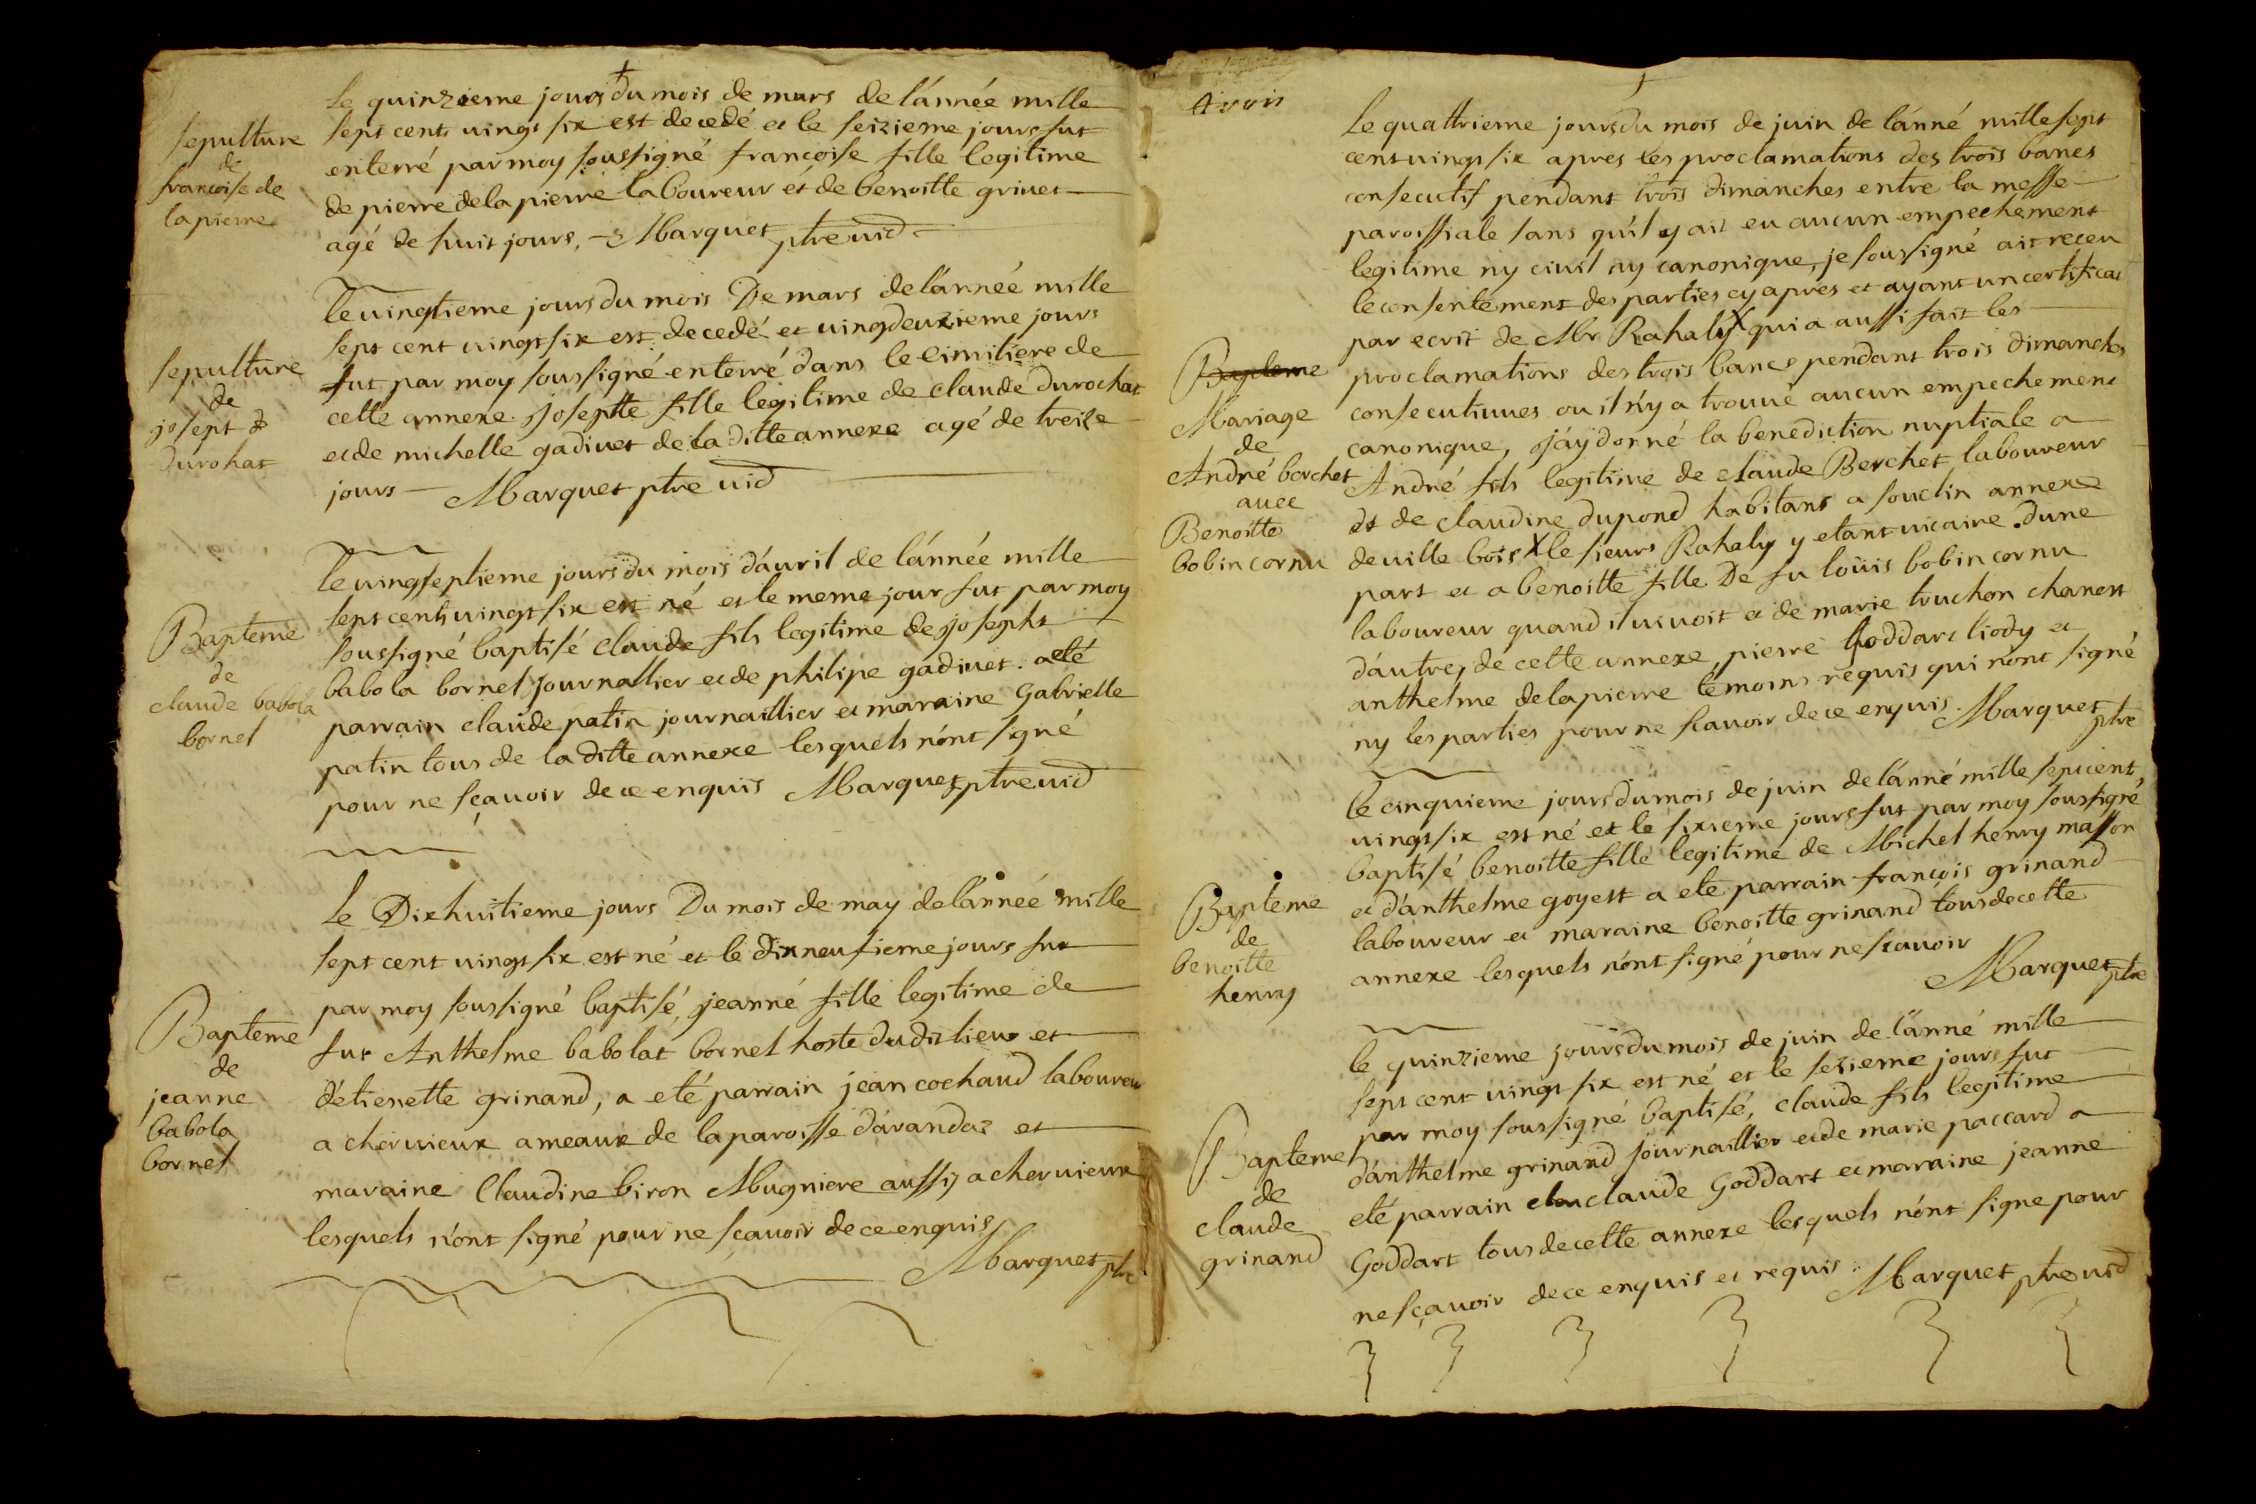 le quinzieme jours du mois de mars de l'année mille
sepulture
sept cents vingt six est decedé et le seizieme jours fut
de
enterré par moy soussigné francoise fille legitime
francoise de
de pierre delapierre laboureur et de benoitte grinet
lapierre
agé de huit jours, Marquet ptre vid
le vingtieme jours du mois De mars de l'année mille
sept cent vingt six est decedé et vingdeuzieme jours
sepulture
fut par moy soussigné enterré dans le cimitiere de
de
cette annexe josephte fille legitime de claude durochat
josept d
et de michelle gadivet de la ditte annexe agé de treize
durohat
jours Marquet ptre vid
le vingseptieme jours du mois d'avril de l'année mille
sept cents vingt six est né et le meme jour fut par moy
Bapteme
soussigné baptisé claude fils legitime de josepht
de
babola bornel journallier et de philipe gadivet. a eté
claude babola
parrain claude patin journaillier et maraine Gabrielle
bornel
patin tous de la ditte annexe lesquels n'ont signé
pour ne sçavoir de ce enquis Marquet ptre vid
Le Dixhuitieme jours Du mois de may de l'année mille
sept cent vingt six est né et le dixneufieme jours fut
par moy soussigné baptisé, jeanne fille legitime de
Bapteme
fut Anthelme babolat bornel hoste dudit lieu et
de
d'etienette grinand, a eté parrain jean cochaud laboureur
jeanne
a chervieux ameaux de la paroisse d'arandas et
babola
maraine Claudine biron Mugniere aussy a chervieux
bornel
lesquels n'ont signé pour ne sçavoir de ce enquis
Marquet ptre
trois
Le quattrieme jours du mois de juin de l'anné mille sept
cent vingt six apres les proclamations des trois bancs
consecutif pendant trois dimanches entre la messe
paroissiale sans qu'il y ait eu aucun empechement
legitime ny civil ny canonique, je soussigné ait receu
le consentement des parties cy apres et ayant un certificat
par ecrit de Mr Rahaly X qui a aussi fait les
Bapteme
proclamations des trois bancs pendant trois dimanches
Mariage
consecutivves ou il n'y a trouvé aucun empechement
de
canonique, j'ay donné la benediction nuptiale a
André berchet
André fils legitime de claude Berchet laboureur
avec
et de claudine dupond habitant a souclin annexe
Benoitte
de ville bois X le sieurs Rahaly y etant vicaire. d'une
bobin cornu
part et a benoitte fille De fu loüis bobin cornu
laboureur quand il vivoit et de marie truchon chenest
d'autre, de cette annexe, pierre goddart liody et
anthelme delapierre temoins requis qui n'ont signé
ny les parties pour ne scavoir de ce enquis. Marquet ptre
le cinquieme jours du mois de juin de l'anné mille sept cent,
vingt six est né et le sixieme jours fut par moy soussigné
baptisé benoitte fille legitime de Michel henry masson
Bapteme
et d'anthelme goyett a eté parrain françois grinand
de
laboureur et maraine benoitte grinand tous de cette
benoitte
annexe lesquels n'ont signé pour ne scavoir
henry
Marquet ptre
le quinzieme jours du mois de juin de l'anné mille
sept cent vingt six est né et le sezieme jours fut
par moy soussigné baptisé, claude fils legitime
Bapteme
d'anthelme grinand journaillier et de marie paccard a
de
eté parrain claude Goddart et maraine jeanne
claude
Goddart tous de cette annexe lesquels n'ont signe pour
grinand
ne sçavoir de ce enquis et requis. Marquet ptre vid